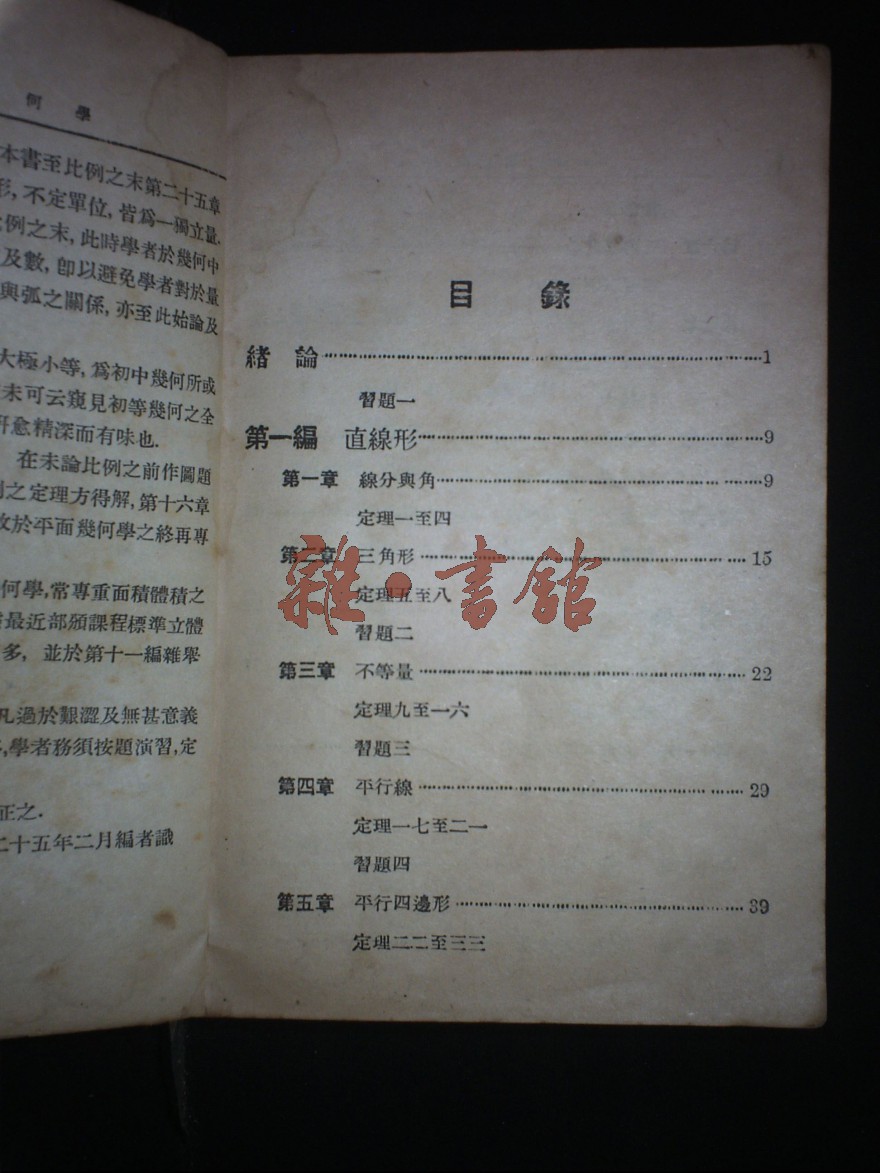 何學
本書至比例之末第二十五章
形, 不定單位, 皆爲一獨立量.
例之末, 此時學者於幾何中
及數, 卽以避免學者對於量
與弧之關係, 亦至此始論及
大極小等, 爲初中幾何所或
未可云窺見初等幾何之全
愈精深而有味也.
在未論比例之前作圖題
之定理方得解, 第十六章
故於平面幾何學之終再專
何學, 常專重面積體積之
最近部頒課程標準立體
多, 並於第十一編雜舉
凡過於艱澀及無甚意義
,學者務須按題演習, 定
正之.
二十五年二月編者識
目錄
緒論 1
習題一
第一編 直線形 9
第一章 線分與角 9
定理一至四
第二章 三角形 15
定理五至八
習題二
第三章 不等量 22
定理九至一六
習題三
第四章 平行線 29
定理一七至二一
習題四
第五章 平行四邊形 39
定理二二至三三
雜·書館